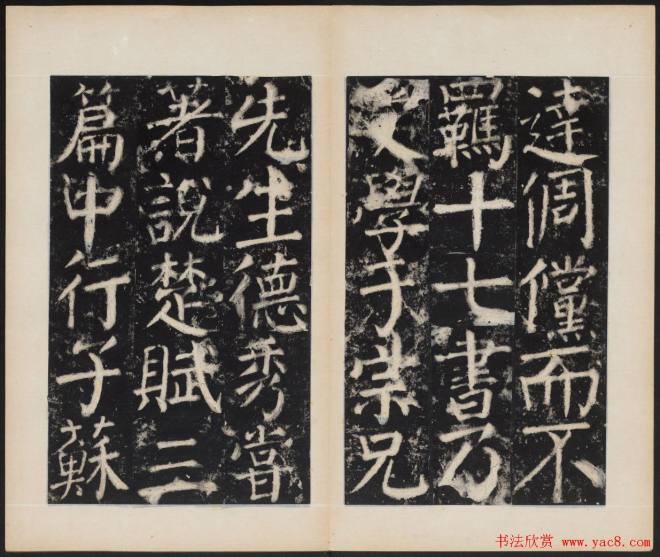 達倜儻而不
羈十七書乃
受學于宗兄
先生德秀嘗
著說楚賦三
篇中行子蘇
书法欣赏 www.yac8.com